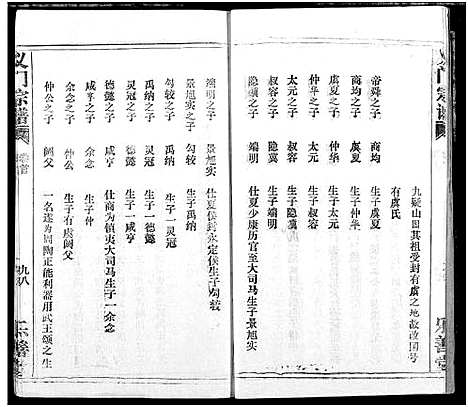 九疑山因其祖受封有虞之地故改国号
有虞氏
帝舜之子 商均 生子虞夏
商均之子 虞夏 生子仲华
虞夏之子 仲华 生子太元
仲华之子 太元 生子叔容
太元之子 叔容 生子隐冀
叔容之子 隐冀 生子端明
隐冀之子 端明 仕夏少康历官至大司马生子景旭实
乐善堂
义门宗谱 卷首
端明之子 景旭实 仕夏侯封永定侯生子勾较
景旭实之子 勾较 生子禹纳
勾较之子 禹纳 生子一灵冠
禹纳之子 灵冠 生子一德懿
灵冠之子 德懿 生子一咸亨
德懿之子 咸亨 仕商为镇夷大司马生子一余念
咸亨之子 余念 生子仲
余念之子 仲公 生子有虞阏父
仲公之子 阏父 一名遂为周陶正能利器用武王颂之生
九八
乐善堂